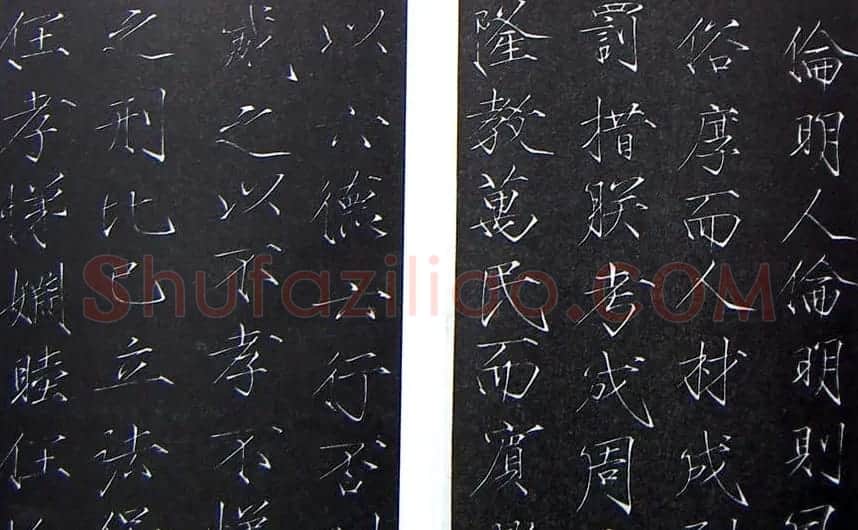 倫明人倫明則
俗厚而人材成
罰措朕考成周
隆教萬民而賓
以六德六行否
威之以不孝不
之刑比已立法
任孝悌婣睦任
Shufaziliao.COM